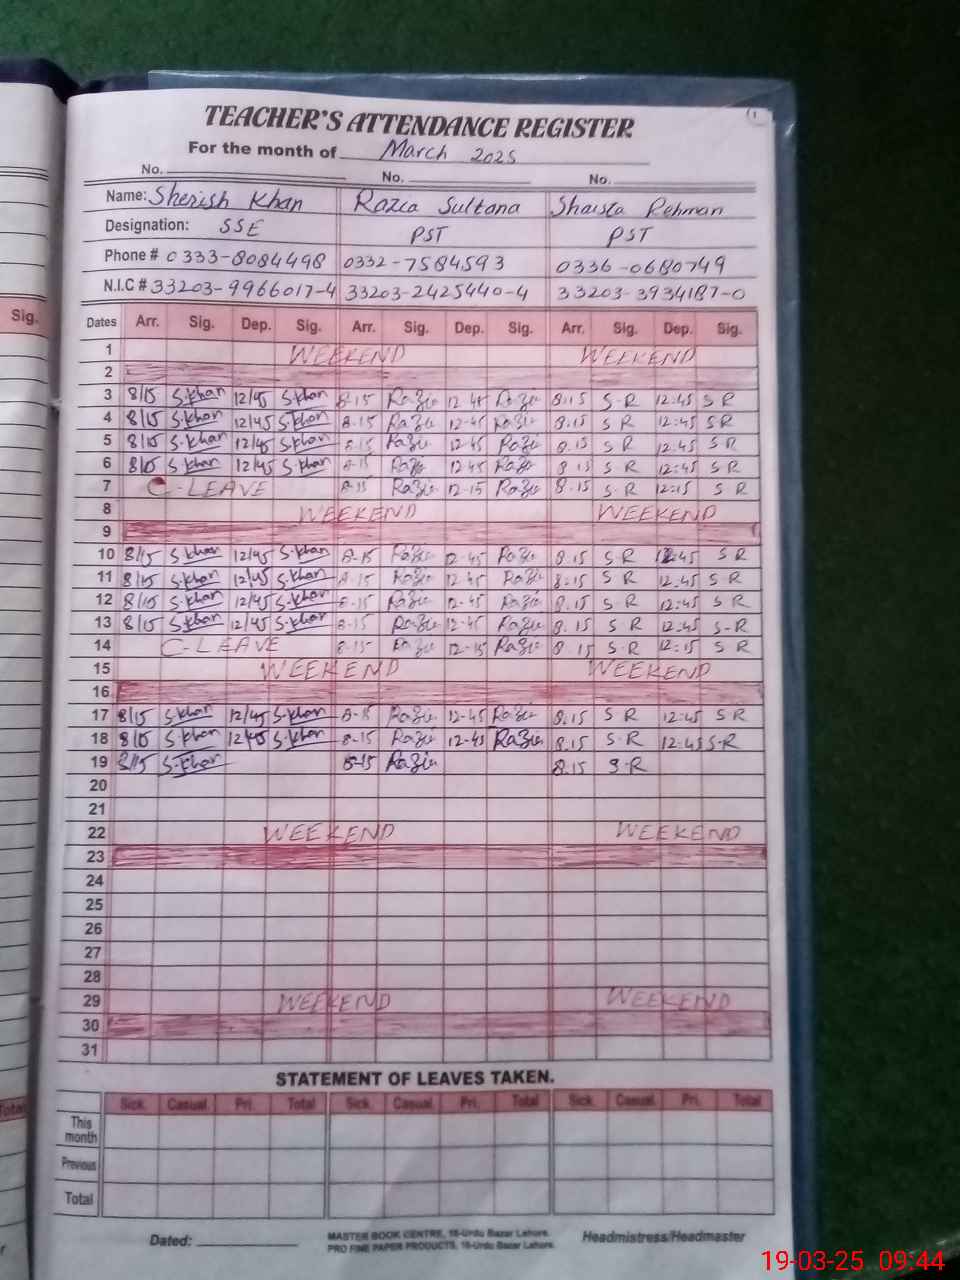 1
TEACHER'S ATTENDANCE REGISTER
For the month of March 2025
No. No. No.
Name: Sherish Khan Razia Sultana Shaista Rehman
Designation: SSE PST PST
Phone # 0333-8084498 0332-7584593 0336-0680749
N.I.C # 33203-9966017-4 33203-2425440-4 33203-3934187-0
Sig. Dates Arr. Sig. Dep. Sig. Arr. Sig. Dep. Sig. Arr. Sig. Dep. Sig.
1 WEEKEND WEEKEND
2
3 8/15 S.khan 12/45 S.khan 8-15 Razia 12-45 Razia 8:15 S-R 12:45 S R
4 8/15 S.khan 12/45 S.khan 8-15 Razia 12-45 Razia 8.15 S R 12:45 S R
5 8/15 S.khan 12/45 S.khan 8-15 Razia 12-45 Razia 8.15 S R 12.45 S R
6 8/15 S.khan 12/45 S.khan 8-15 Razia 12-45 Razia 8.15 S R 12:45 S R
7 C-LEAVE 8-15 Razia 12-15 Razia 8.15 S R 12:15 S R
8 WEEKEND WEEKEND
9
10 8/15 S.khan 12/45 S.khan 8-15 Razia 12-45 Razia 8.15 S-R 12:45 S R
11 8/15 S.khan 12/45 S.khan 8-15 Razia 12-45 Razia 8:15 S R 12:45 S R
12 8/15 S.khan 12/45 S.khan 8-15 Razia 12-45 Razia 8.15 S-R 12:45 S R
13 8/15 S.khan 12/45 S.khan 8-15 Razia 12-45 Razia 8.15 S R 12:45 S-R
14 C-LEAVE 8-15 Razia 12-15 Razia 8.15 S-R 12:15 S R
15 WEEKEND WEEKEND
16
17 8/15 S.khan 12/45 S.khan 8-15 Razia 12-45 Razia 8.15 S R 12:45 S R
18 8/15 S.khan 12/45 S.khan 8-15 Razia 12-45 Razia 8.15 S-R 12:45 S-R
19 8/15 S.khan 8-15 Razia 8.15 S-R
20
21
22 WEEKEND WEEKEND
23
24
25
26
27
28
29 WEEKEND WEEKEND
30
31
STATEMENT OF LEAVES TAKEN.
Total Sick. Casual. Pri. Total Sick. Casual. Pri. Total Sick. Casual. Pri. Total
This month
Previous
Total
Dated: MASTER BOOK CENTRE, 16-Urdu Bazar Lahore. Headmistress/Headmaster
PRO FINE PAPER PRODUCTS, 16-Urdu Bazar Lahore.
19-03-25 09:44